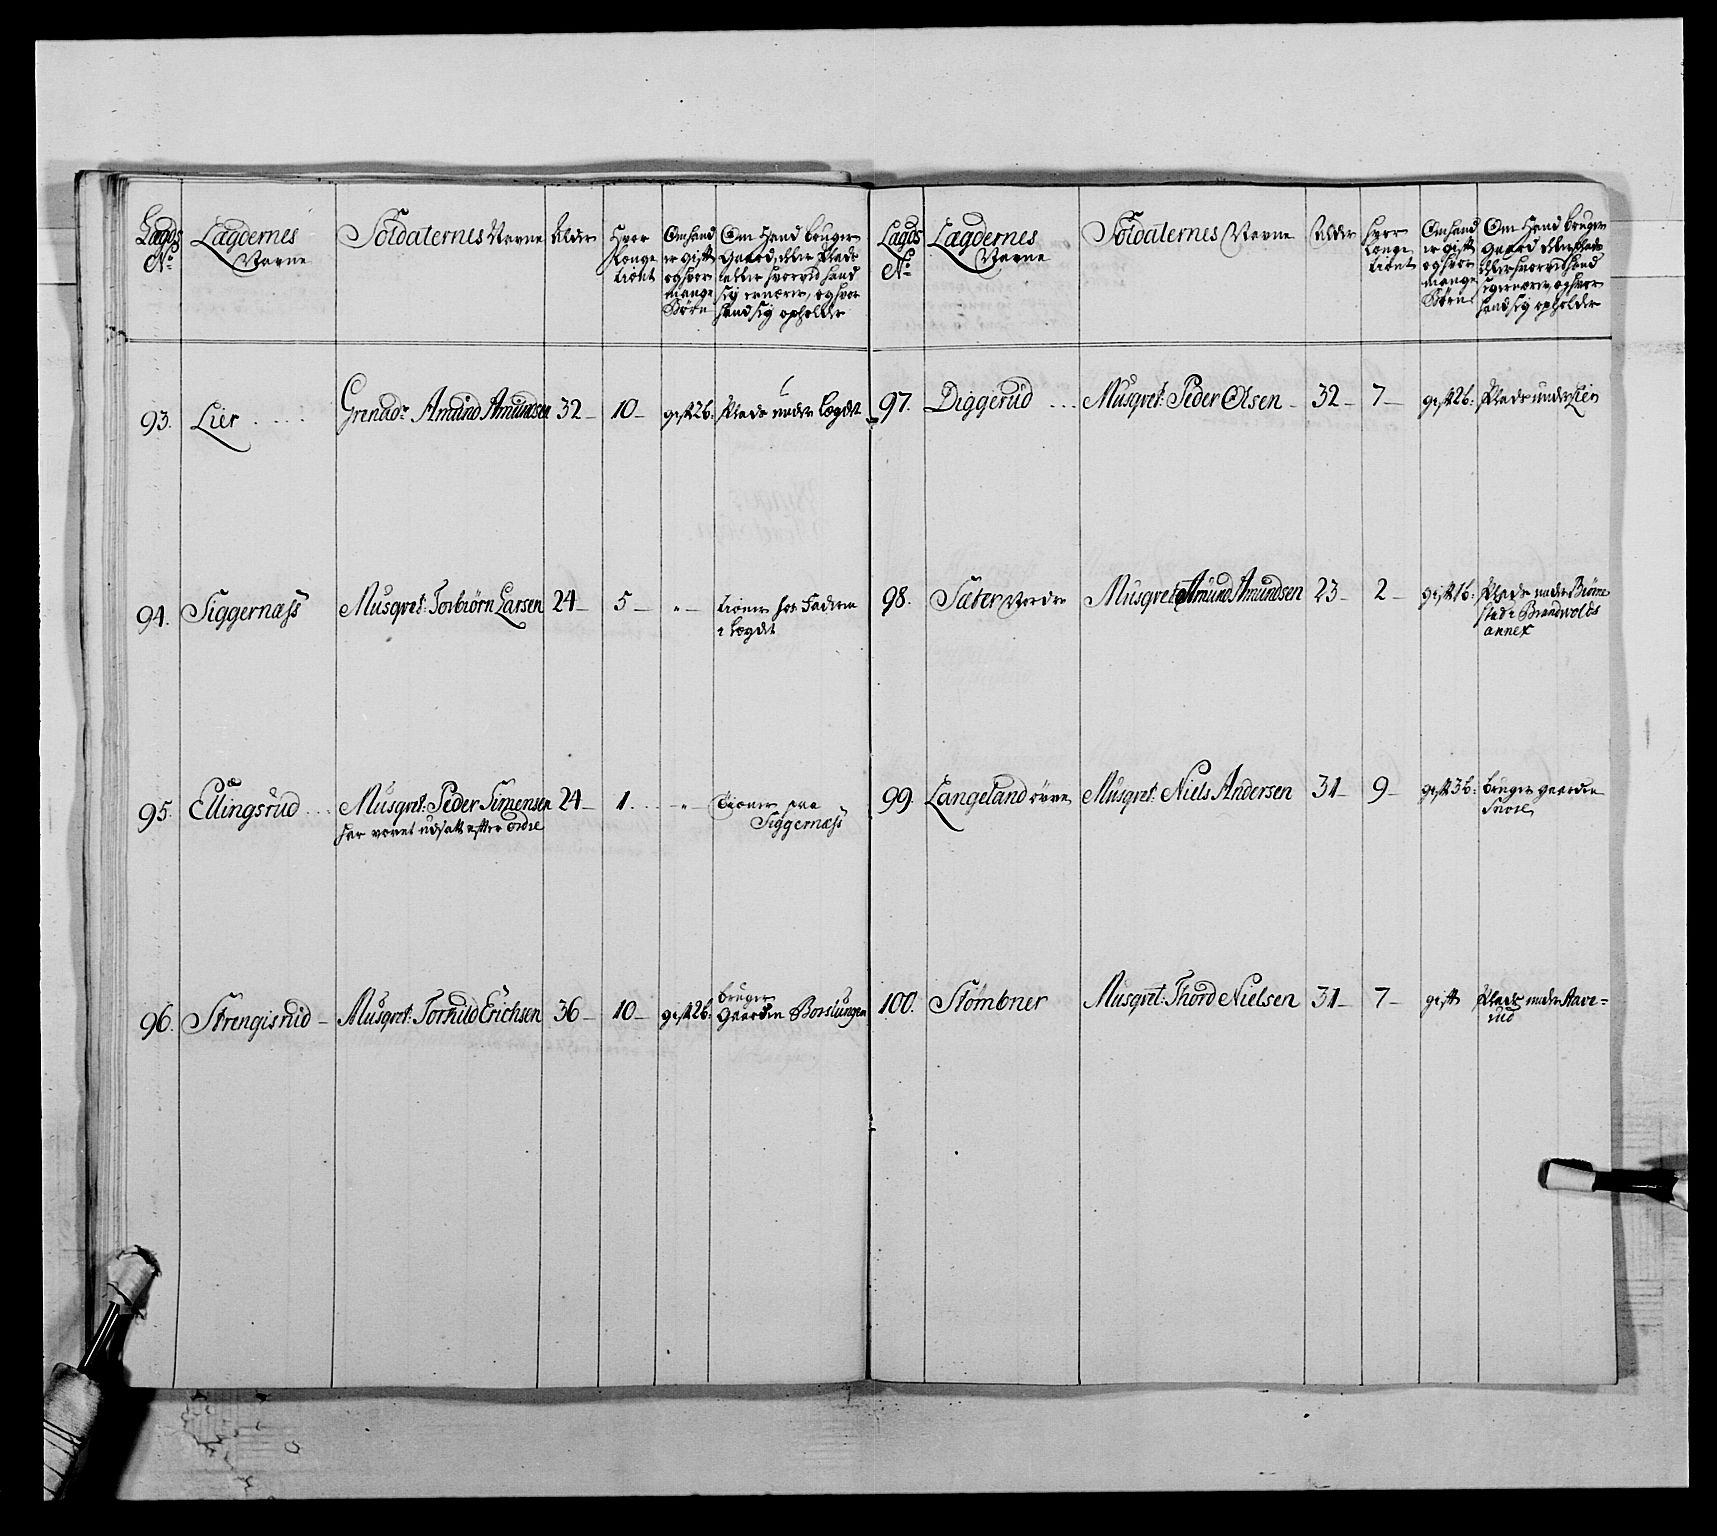 Lægds No. Lægdernes Navne Soldaternes Navne Alder Hvor længe tient Om hand er gift og hvor mange Børn Om Hand bruger Gaard eller Plads eller hvorved hand sig ernærer, og hvor hand sig opholder
93. Lier Grenadr. Amund Amundsen 32 10 gift 2 b: Plads under lægdet
94. Siggernæss Musqvet: Torbiörn Larsen 24 5 " tiener hos Faderen
i lægdet
95. Ellingsrud Musqvet: Peder Simensen 24 1 " tiener paa
har været udsatt efter ordre Siggernæss
96. Strengisrud Musqvet: Torkild Erichsen 36 10 gift 2 b: bruger
Gaarden Borslungen
Lægds No. Lægdernes Navne Soldaternes Navne Alder hvor længe tient Om hand er gift og hvor mange Børn Om Hand bruger Gaard eller Plads eller hvorved hand sig ernærer, og hvor hand sig opholder
97. Diggerud Musqvet: Peder Olsen 32 7 gift 2 b: Plads under Lier
98. Sæter Nordre Musqvet: Amund Amundsen 23 2 gift 1 b: Plads under Biörne
stad i Brandvolds
annex
99. Langeland övre Musqvet: Niels Andersen 31 9 gift 3 b: bruger gaarden
Snore
100. Stömbner Musqvet: Thord Nielsen 31 7 gift Plads under Aave=
rud